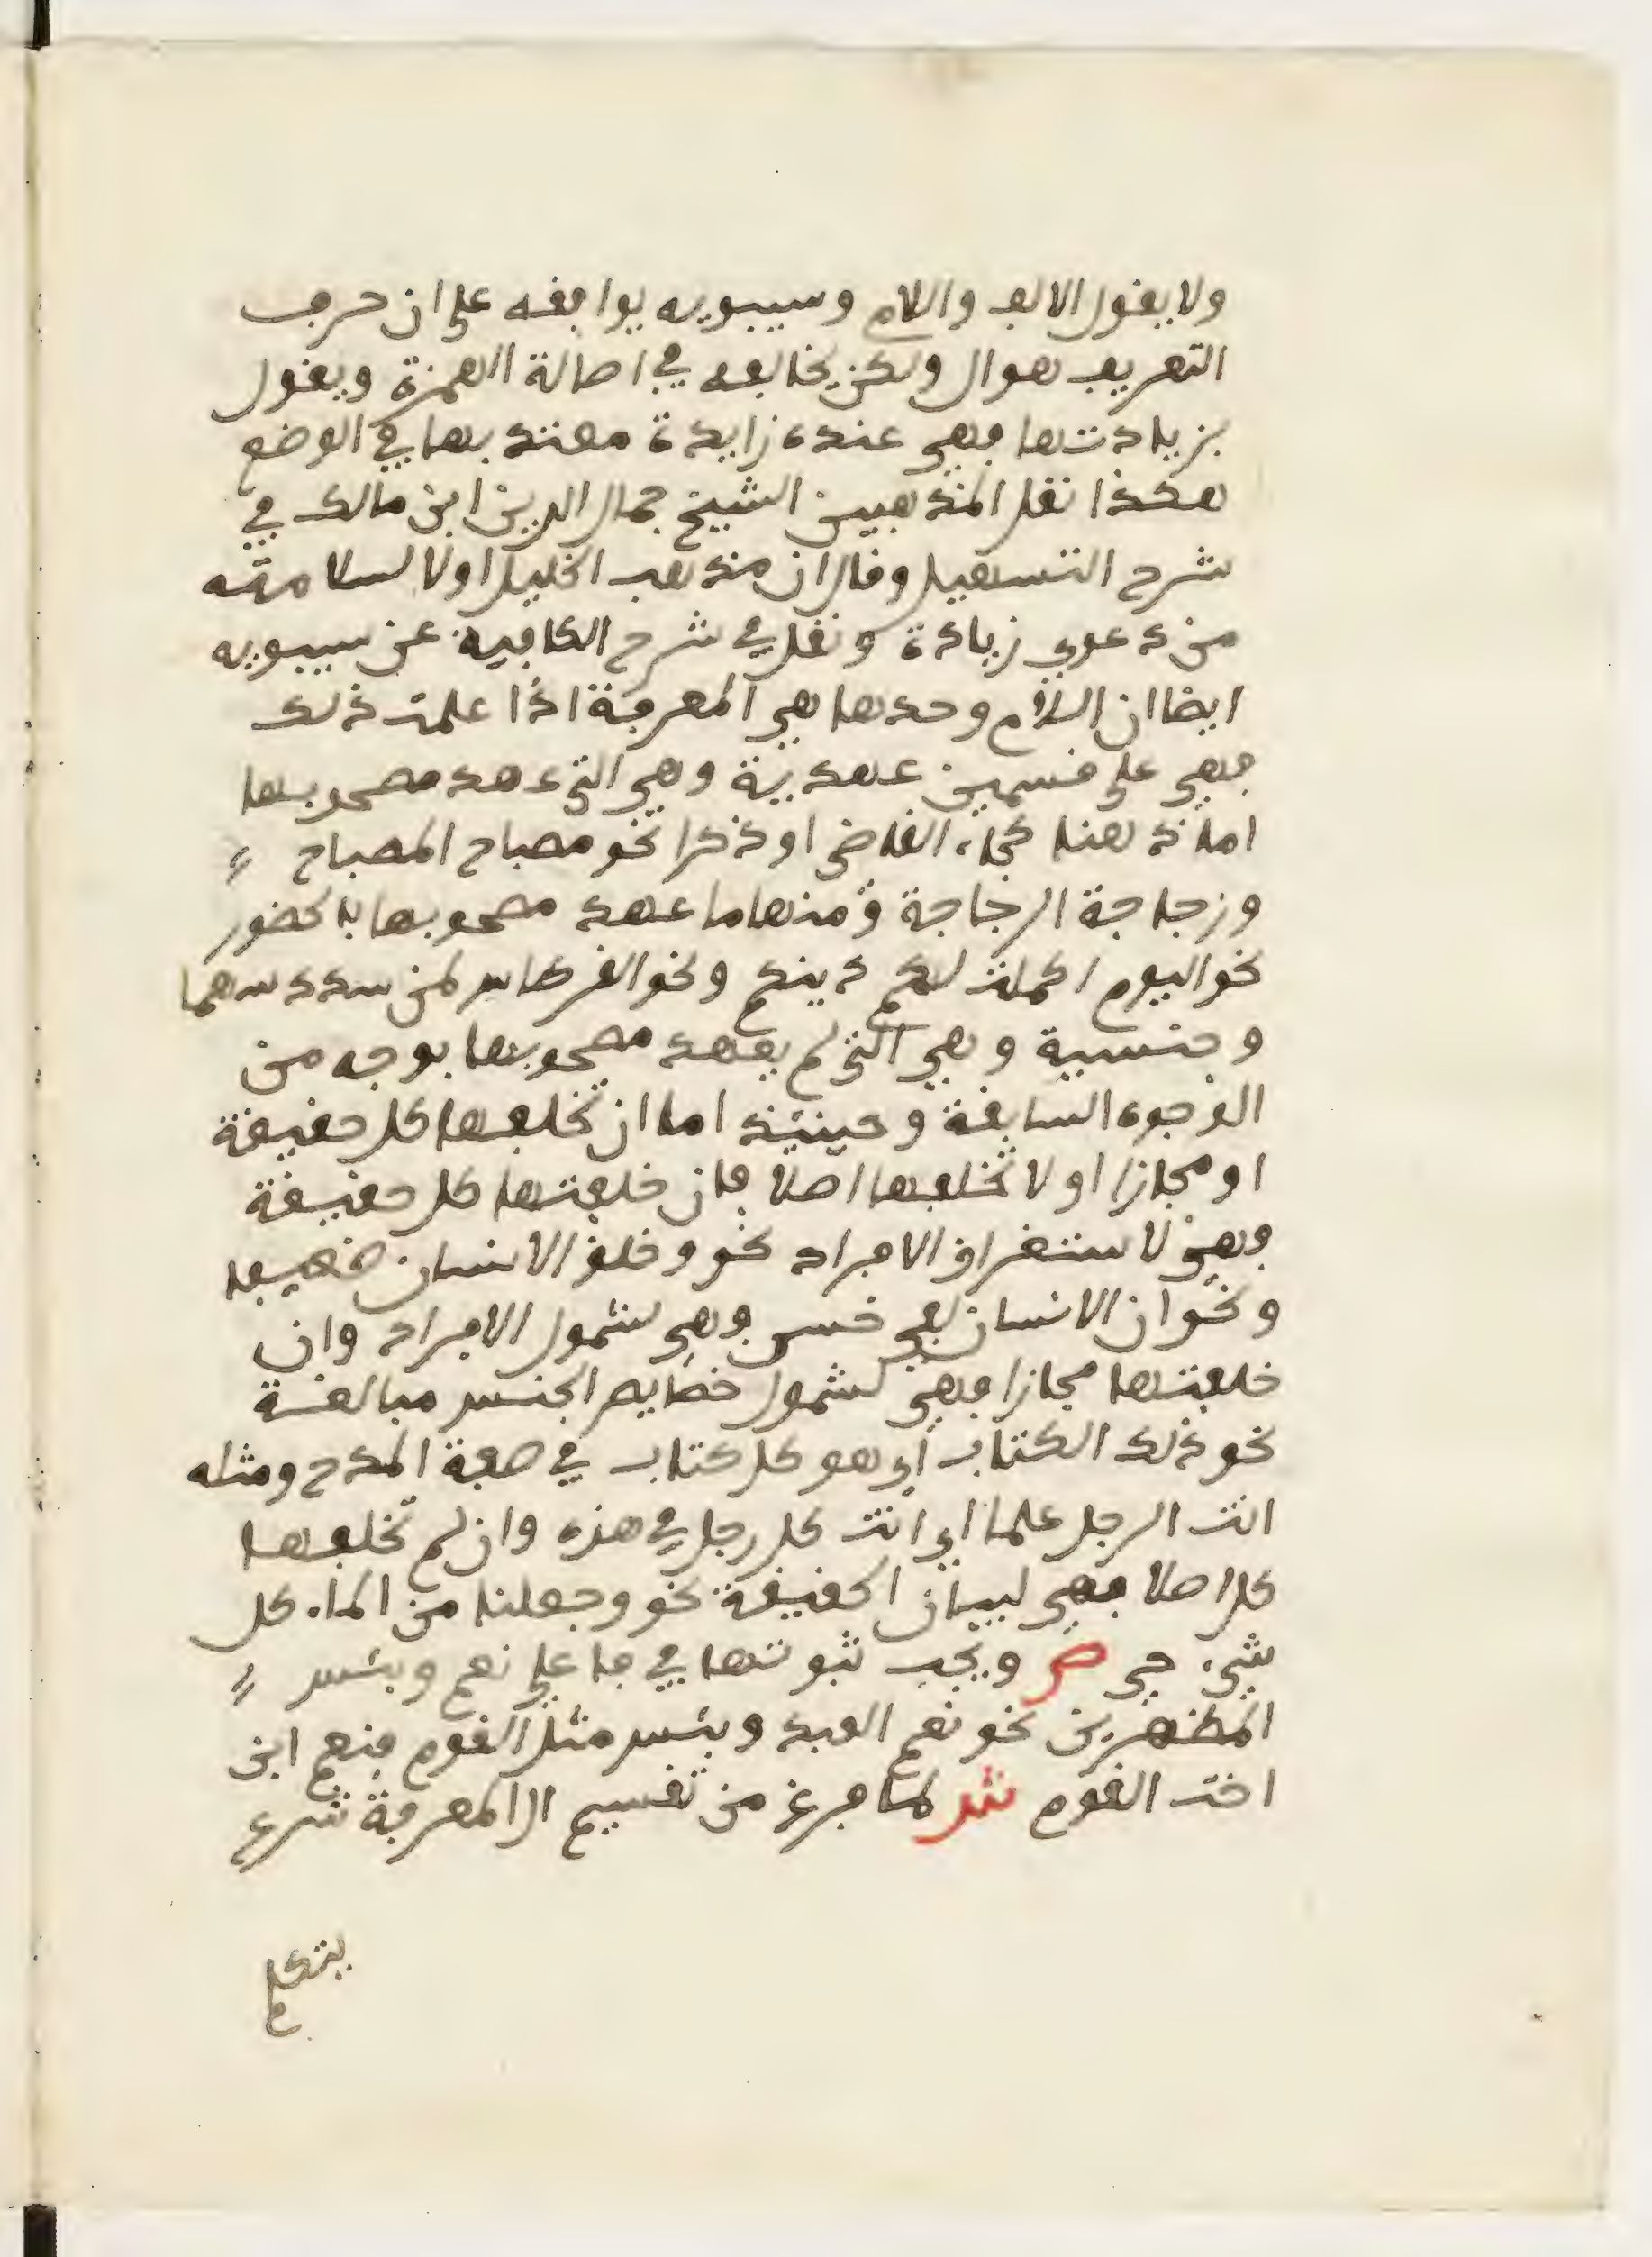 ولا يقول الالف واللام وسيبويه يوافقه على ان حرف
التعريف هو ال ولكن يخالفه في اصالة الهمزة ويقول
بزيادتها فهي عنده زايدة معتد بها في الوضع
هكذا نقل المذهبين الشيخ جمال الدين ابن مالك في
شرح التسهيل وقال ان مذهب الخليل اولا لسلامته
من دعوي زيادة ونقل في شرح الكافية عن سيبويه
ايضا ان اللام وحدها هي المعرفة اذا علمت ذلك
فهي على قسمين عهدية وهي التي عهد مصحوبها
اما ذهنا كجاء القاضي او ذكرا نحو مصباح المصباح
وزجاجة الزجاجة ومنها ما عهد مصحوبها بالحضور
نحو اليوم اكملت لكم دينكم ونحو القرطاس لمن سدد سهما
وجنسية وهي التي لم يعهد مصحوبها بوجه من
الوجوه السابقة وحينئذ اما ان تخلفها كل حقيقة
او مجازا او لا تخلفها اصلا فان خلفتها كل حقيقة
فهي لاستغراق الافراد نحو وخلق الانسان ضعيفا
ونحو ان الانسان لفي خسر فهي لشمول الافراد وان
خلفتها مجازا فهي لشمول خصايص الجنس مبالغة
نحو ذلك الكتاب اي هو كل كتاب في صفة المدح ومثله
انت الرجل علما اي انت كل رجل في هذه وان لم تخلفها
كل اصلا فهي لبيان الحقيقة نحو وجعلنا من الماء كل
شيء حي ص ويجب ثبوتها في فاعلي نعم وبئس
المظهرين نحو نعم العبد وبئس مثل القوم فنعم ابن
اخت القوم ش لما فرغ من تقسيم ال المعرفة شرع
يتكلم